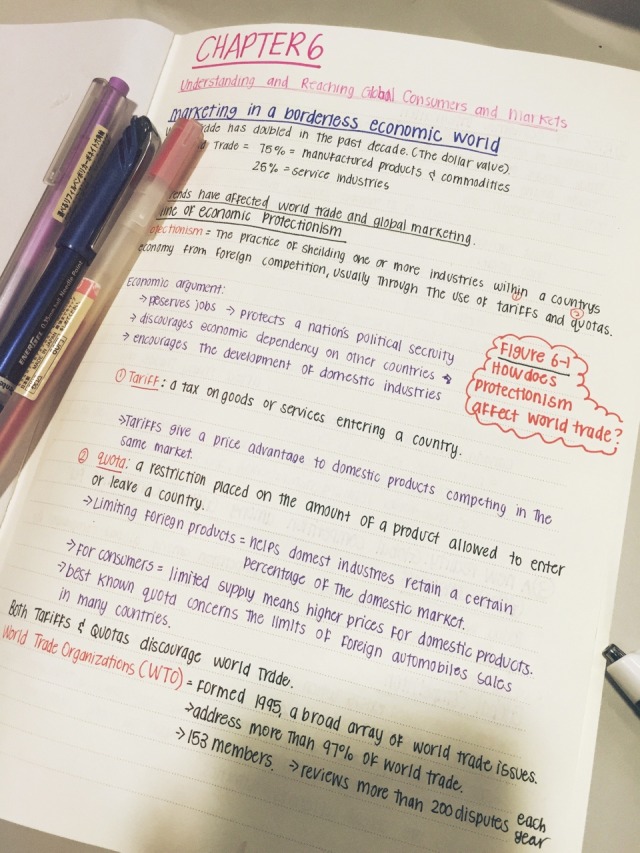 CHAPTER 6
Understanding and Reaching Global Consumers and Markets
marketing in a borderless economic world
trade has doubled in the past decade. (The dollar value)
Trade = 75% = manufactured products & commodities
25% = service industries
have affected world trade and global marketing.
of economic Protectionism
= The practice of sheilding one or more industries within a countrys
economy from foreign competition, usually through the use of tariffs and quotas.
① ②
Economic argument:
→ preserves jobs → protects a nation's political secruity
→ discourages economic dependency on other countries →
→ encourages the development of domestic industries
Figure 6-1
How does
protectionism
affect world trade?
① Tariff: a tax on goods or services entering a country.
→Tariffs give a price advantage to domestic products competing in the
same market.
② quota: a restriction placed on the amount of a product allowed to enter
or leave a country.
→ Limiting foriegn products = helps domest industries retain a certain
percentage of the domestic market.
→ For consumers = limited supply means higher prices for domestic products.
→ best known quota concerns the limits of foreign automobiles sales
in many countries.
Both Tariffs & Quotas discourage world trade.
World Trade Organizations (WTO) = formed 1995, a broad array of world trade issues.
→address more than 97% of world trade.
→153 members. → reviews more than 200 disputes each
year